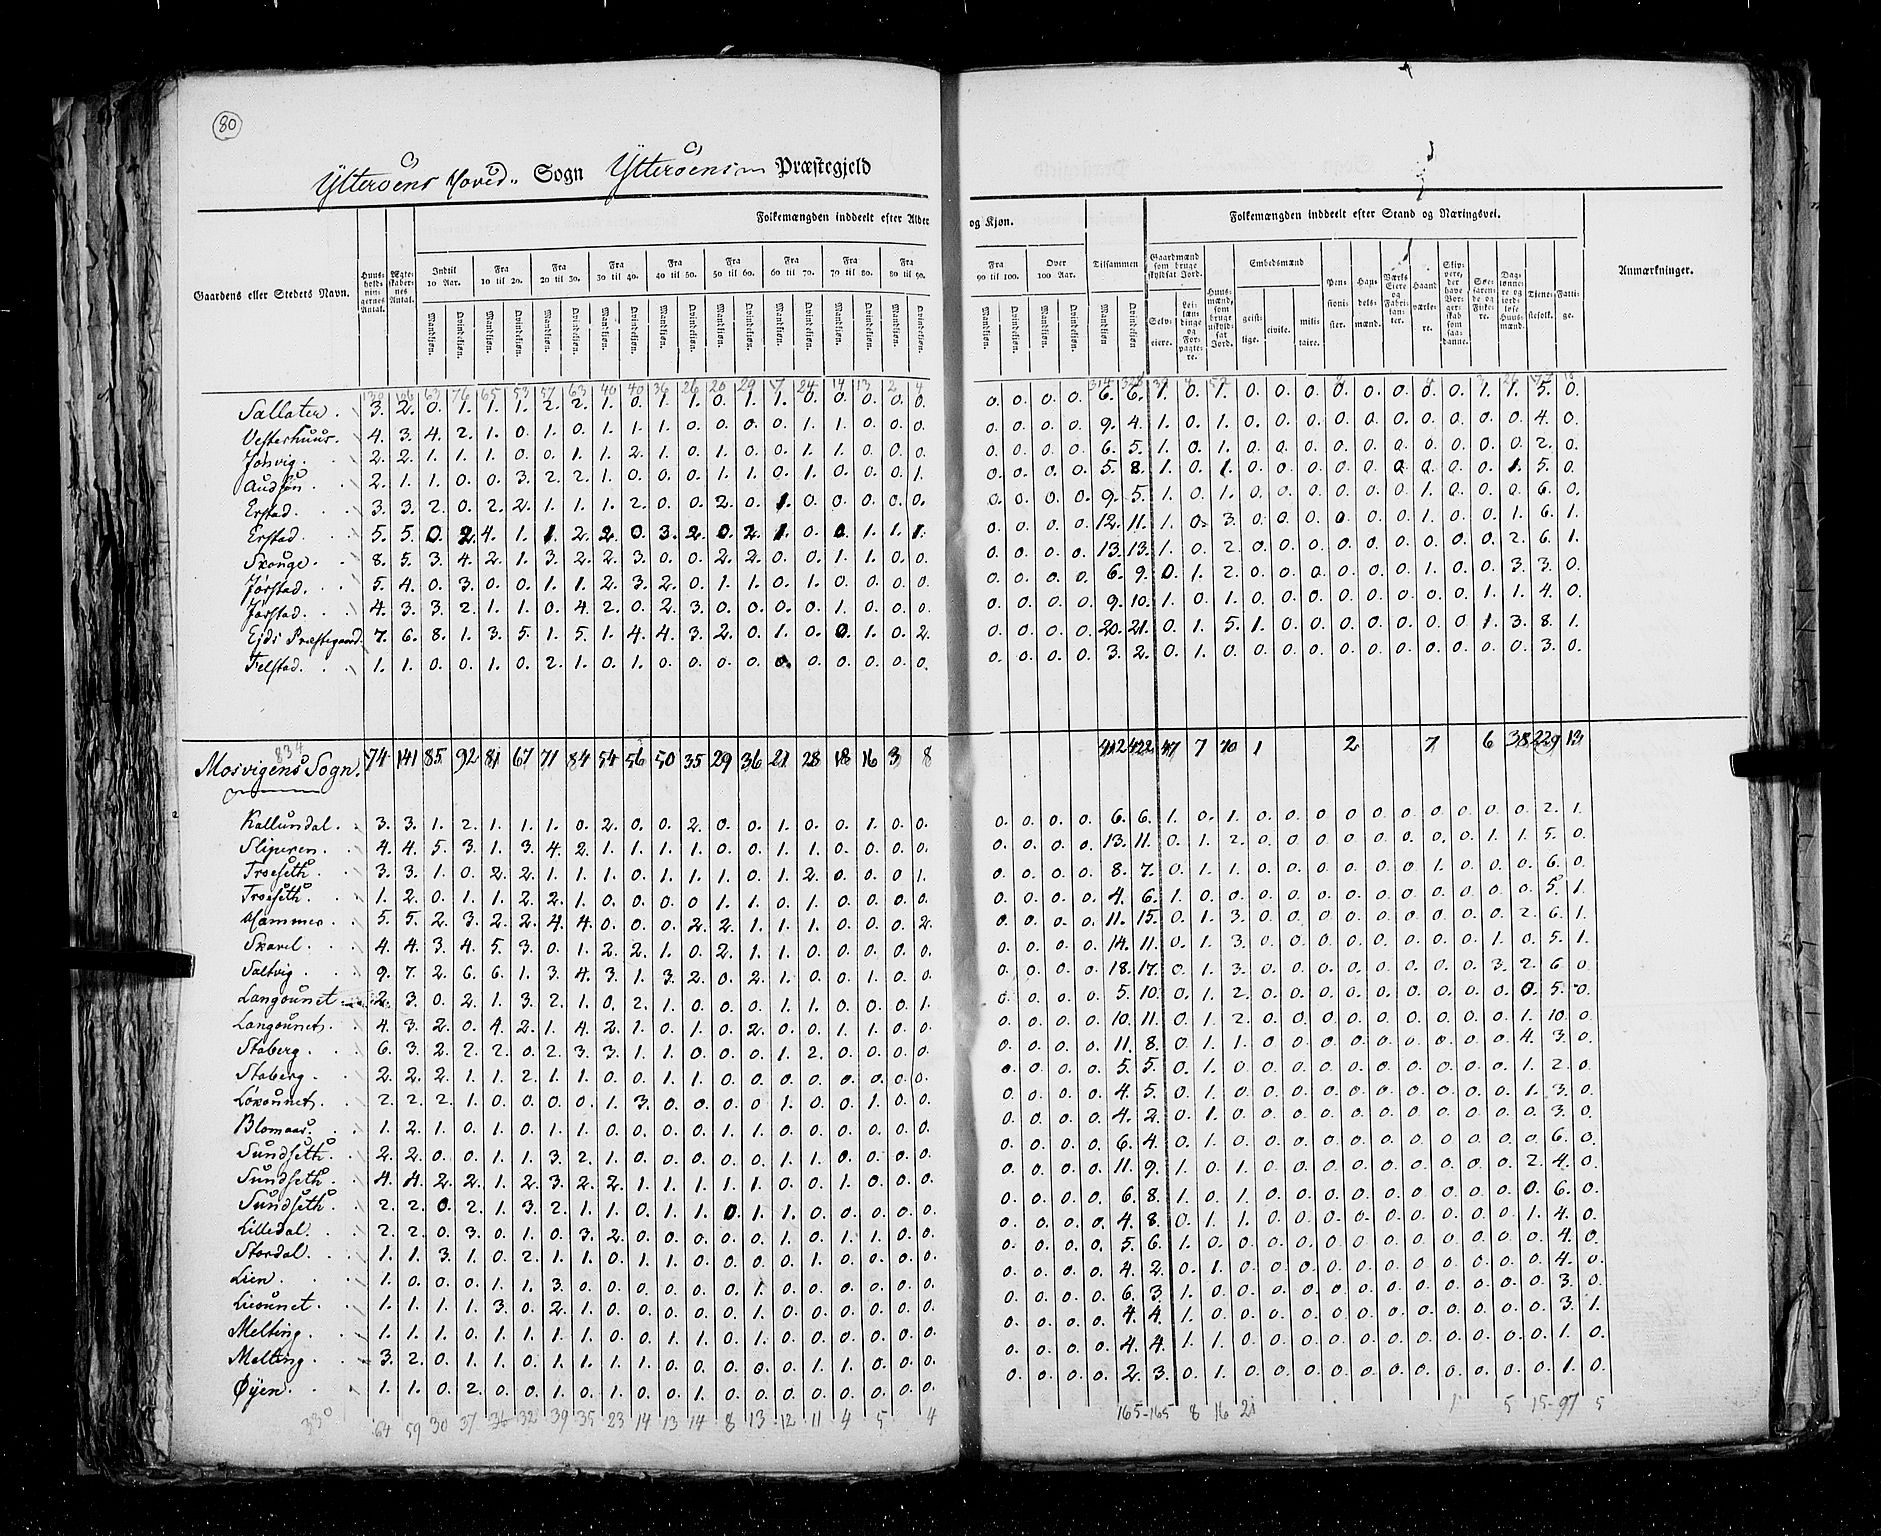 80
Ytterøens Hoved- Sogn Ytterøens Præstegjeld
Folkemængden inddeelt efter Alder og Kjøn. Folkemængden inddeelt efter Stand og Næringsvei.
Gaardens eller Stedets Navn. Huusholdningernes Antal. Ægteskabernes Antal. Indtil 10 Aar. Fra 10 til 20. Fra 20 til 30. Fra 30 til 40. Fra 40 til 50. Fra 50 til 60. Fra 60 til 70. Fra 70 til 80. Fra 80 til 90. Fra 90 til 100. Over 100 Aar. Tilsammen Gaardmænd som bruge skyldsat Jord. Huusmænd, som bruge uskyldsat Jord. Embedsmænd Pensionister. Handelsmænd. Værks Eiere og Fabrikanter. Haandværkere. Skippere, der have Borgerskab som saadanne. Søefarende og Fiskere. Daglønnere og jordløse Huusmænd. Tjenestefolk. Fattige. Anmærkninger.
Mandkjøn. Qvindekjøn. Selveiere. Leilændinge og Forpagtere. geistlige. civile. militaire.
Sallater. 3. 2. 0. 1. 1. 1. 2. 2. 1. 0. 1. 1. 0. 1. 1. 0. 0. 0. 0. 0. 0. 0. 0. 0. 6. 6. 1. 0. 1. 0. 0. 0. 0. 0. 0. 0. 0. 1. 1. 5. 0.
Vesterhuus. 4. 3. 4. 2. 1. 0. 1. 0. 1. 1. 1. 0. 0. 0. 0. 1. 1. 0. 0. 0. 0. 0. 0. 0. 9. 4. 1. 0. 1. 0. 0. 0. 0. 0. 0. 0. 0. 0. 0. 4. 0.
2. 2. 1. 1. 1. 0. 0. 1. 1. 2. 1. 0. 1. 0. 0. 1. 1. 0. 0. 0. 0. 0. 0. 0. 6. 5. 1. 0. 1. 0. 0. 0. 0. 0. 0. 0. 0. 0. 0. 2. 0.
2. 1. 1. 0. 0. 3. 2. 2. 1. 0. 0. 0. 1. 1. 0. 1. 0. 0. 0. 1. 0. 0. 0. 0. 5. 8. 1. 0. 1. 0. 0. 0. 0. 0. 0. 0. 0. 0. 1. 5. 0.
Erstad. 3. 3. 2. 0. 2. 2. 1. 1. 1. 2. 0. 0. 2. 0. 1. 0. 0. 0. 0. 0. 0. 0. 0. 0. 9. 5. 1. 0. 1. 0. 0. 0. 0. 0. 0. 1. 0. 0. 0. 6. 0.
Erstad. 5. 5. 0. 2. 4. 1. 1. 2. 2. 0. 3. 2. 0. 2. 1. 0. 0. 1. 1. 1. 0. 0. 0. 0. 12. 11. 1. 0. 3. 0. 0. 0. 0. 0. 0. 1. 0. 0. 1. 6. 1.
Skouge. 8. 5. 3. 4. 2. 1. 3. 2. 2. 3. 0. 0. 2. 2. 0. 0. 1. 1. 0. 0. 0. 0. 0. 0. 13. 13. 1. 0. 2. 0. 0. 0. 0. 0. 0. 0. 0. 0. 2. 6. 1.
Jørstad. 5. 4. 0. 3. 0. 0. 1. 1. 2. 3. 2. 0. 1. 1. 0. 1. 0. 0. 0. 0. 0. 0. 0. 0. 6. 9. 0. 1. 2. 0. 0. 0. 0. 0. 0. 1. 0. 0. 3. 3. 0.
Jørstad. 4. 3. 3. 2. 1. 1. 0. 4. 2. 0. 2. 3. 0. 0. 0. 0. 1. 0. 0. 0. 0. 0. 0. 0. 9. 10. 1. 0. 1. 0. 0. 0. 0. 0. 0. 0. 0. 1. 1. 4. 0.
Ejds Præstegaard. 7. 6. 8. 1. 3. 5. 1. 5. 1. 4. 4. 3. 2. 0. 1. 0. 0. 1. 0. 2. 0. 0. 0. 0. 20. 21. 0. 1. 5. 1. 0. 0. 0. 0. 0. 0. 0. 1. 3. 8. 1.
Felstad. 1. 1. 0. 0. 1. 0. 2. 1. 0. 1. 0. 0. 0. 0. 0. 0. 0. 0. 0. 0. 0. 0. 0. 0. 3. 2. 0. 1. 0. 0. 0. 0. 0. 0. 0. 0. 0. 0. 0. 3. 0.
834
Mosvigens Sogn. 74 141 85 92 81 67 71 84 54 56 50 35 29 36 21 28 18 16 3 8 412 422 47 7 70 1 2 7 6 38 229 13
Kallundal. 3. 3. 1. 2. 1. 1. 1. 0. 2. 0. 0. 2. 0. 0. 1. 0. 0. 1. 0. 0. 0. 0. 0. 0. 6. 6. 1. 0. 1. 0. 0. 0. 0. 0. 0. 0. 0. 0. 0. 2. 1.
Slipuren. 4. 4. 5. 3. 1. 3. 4. 2. 1. 1. 1. 1. 0. 0. 1. 1. 0. 0. 0. 0. 0. 0. 0. 0. 13. 11. 0. 1. 2. 0. 0. 0. 0. 0. 0. 0. 0. 1. 1. 5. 0.
Troeseth. 3. 3. 1. 0. 2. 2. 1. 1. 1. 0. 1. 1. 1. 0. 1. 2. 0. 0. 0. 1. 0. 0. 0. 0. 8. 7. 0. 1. 1. 0. 0. 0. 0. 0. 0. 1. 0. 0. 0. 6. 0.
Troeseth. 1. 2. 0. 1. 1. 2. 2. 1. 0. 0. 0. 0. 1. 1. 0. 1. 0. 0. 0. 0. 0. 0. 0. 0. 4. 6. 1. 0. 0. 0. 0. 0. 0. 0. 0. 0. 0. 0. 0. 5. 1.
Hammer. 5. 5. 2. 3. 2. 2. 4. 4. 0. 0. 0. 2. 2. 1. 1. 1. 0. 0. 0. 2. 0. 0. 0. 0. 11. 15. 0. 1. 3. 0. 0. 0. 0. 0. 0. 0. 0. 0. 2. 6. 1.
Skavel. 4. 4. 3. 4. 5. 3. 0. 1. 2. 2. 1. 0. 2. 1. 1. 0. 0. 0. 0. 0. 0. 0. 0. 0. 14. 11. 0. 1. 3. 0. 0. 0. 0. 0. 0. 0. 0. 1. 0. 5. 1.
Saltvig. 9. 7. 2. 6. 6. 1. 3. 4. 3. 1. 3. 2. 0. 2. 1. 0. 0. 1. 0. 0. 0. 0. 0. 0. 18. 17. 0. 1. 3. 0. 0. 0. 0. 0. 0. 0. 0. 3. 2. 6. 0.
Langøunet 2. 3. 0. 2. 1. 3. 2. 1. 0. 2. 1. 0. 0. 0. 1. 1. 0. 0. 0. 1. 0. 0. 0. 0. 5. 10. 0. 1. 2. 0. 0. 0. 0. 0. 0. 0. 0. 0. 0. 5. 0.
Langøunet. 4. 3. 2. 0. 4. 2. 1. 4. 2. 1. 0. 1. 0. 2. 0. 0. 1. 1. 0. 0. 0. 0. 0. 0. 10. 11. 0. 1. 2. 0. 0. 0. 0. 0. 0. 0. 0. 0. 1. 10. 0.
Staberg. 6. 3. 2. 2. 2. 0. 2. 3. 3. 1. 1. 0. 0. 0. 1. 2. 0. 0. 0. 0. 0. 0. 0. 0. 11. 8. 0. 1. 1. 0. 0. 0. 0. 0. 0. 0. 0. 0. 4. 3. 0.
Staberg. 2. 2. 2. 1. 1. 2. 1. 1. 0. 0. 1. 1. 0. 0. 0. 0. 0. 0. 0. 0. 0. 0. 0. 0. 5. 5. 0. 1. 0. 0. 0. 0. 0. 0. 0. 0. 0. 0. 1. 2. 0.
2. 2. 2. 1. 0. 0. 0. 0. 1. 3. 0. 0. 0. 0. 1. 0. 0. 1. 0. 0. 0. 0. 0. 0. 4. 5. 0. 1. 0. 0. 0. 0. 0. 0. 0. 0. 0. 0. 1. 3. 0.
Blomaas. 1. 2. 1. 0. 1. 0. 1. 1. 0. 0. 0. 0. 1. 1. 0. 0. 0. 0. 0. 0. 0. 0. 0. 0. 4. 2. 0. 1. 0. 0. 0. 0. 0. 0. 0. 0. 0. 0. 0. 3. 0.
Sundseth. 2. 2. 0. 0. 1. 1. 3. 2. 1. 0. 0. 0. 0. 0. 1. 1. 0. 0. 0. 0. 0. 0. 0. 0. 6. 4. 0. 1. 0. 0. 0. 0. 0. 0. 0. 0. 0. 0. 0. 6. 0.
Sundseth. 4. 4. 2. 2. 1. 2. 3. 2. 2. 1. 1. 1. 1. 1. 0. 0. 1. 0. 0. 0. 0. 0. 0. 0. 11. 9. 1. 0. 1. 0. 0. 0. 0. 0. 0. 0. 0. 0. 2. 4. 0.
Sundseth. 2. 2. 0. 2. 1. 3. 2. 1. 1. 0. 1. 1. 0. 1. 1. 0. 0. 0. 0. 0. 0. 0. 0. 0. 6. 8. 1. 0. 1. 0. 0. 0. 0. 0. 0. 0. 0. 0. 0. 6. 0.
Lilledal. 2. 2. 0. 3. 0. 1. 0. 3. 2. 0. 0. 0. 0. 0. 1. 0. 1. 1. 0. 0. 0. 0. 0. 0. 4. 8. 0. 1. 1. 0. 0. 0. 0. 0. 0. 0. 0. 0. 1. 4. 0.
Stordal. 1. 1. 3. 1. 0. 2. 1. 1. 0. 1. 1. 0. 0. 0. 0. 1. 0. 0. 0. 0. 0. 0. 0. 0. 5. 6. 1. 0. 0. 0. 0. 0. 0. 0. 0. 0. 0. 0. 0. 4. 0.
Lien. 1. 0. 0. 0. 1. 1. 3. 0. 0. 0. 0. 0. 0. 1. 0. 0. 0. 0. 0. 0. 0. 0. 0. 0. 4. 2. 0. 1. 0. 0. 0. 0. 0. 0. 0. 0. 0. 0. 0. 4. 0.
Lieunet. 1. 1. 1. 1. 3. 0. 2. 1. 0. 0. 0. 0. 0. 1. 0. 0. 0. 0. 0. 0. 0. 0. 0. 0. 6. 3. 1. 0. 0. 0. 0. 0. 0. 0. 0. 0. 0. 0. 0. 3. 0.
Melting. 1. 1. 1. 0. 1. 1. 1. 1. 0. 0. 1. 1. 0. 1. 0. 0. 0. 0. 0. 0. 0. 0. 0. 0. 4. 4. 1. 0. 0. 0. 0. 0. 0. 0. 0. 0. 0. 0. 0. 3. 1.
Melting. 3. 2. 0. 1. 1. 0. 1. 1. 1. 1. 0. 0. 0. 0. 0. 1. 1. 0. 0. 0. 0. 0. 0. 0. 4. 4. 1. 1. 0. 0. 0. 0. 0. 0. 0. 0. 0. 0. 0. 1. 0.
Øyen. 1. 1. 0. 2. 0. 0. 1. 0. 1. 0. 0. 1. 0. 0. 0. 0. 0. 0. 0. 0. 0. 0. 0. 0. 2. 3. 0. 1. 0. 0. 0. 0. 0. 0. 0. 0. 0. 0. 0. 1. 0.
330 64 59 30 37 36 32 39 35 23 14 13 14 8 13 12 11 4 5 4 165 165 8 16 21 1 5 15 97 5